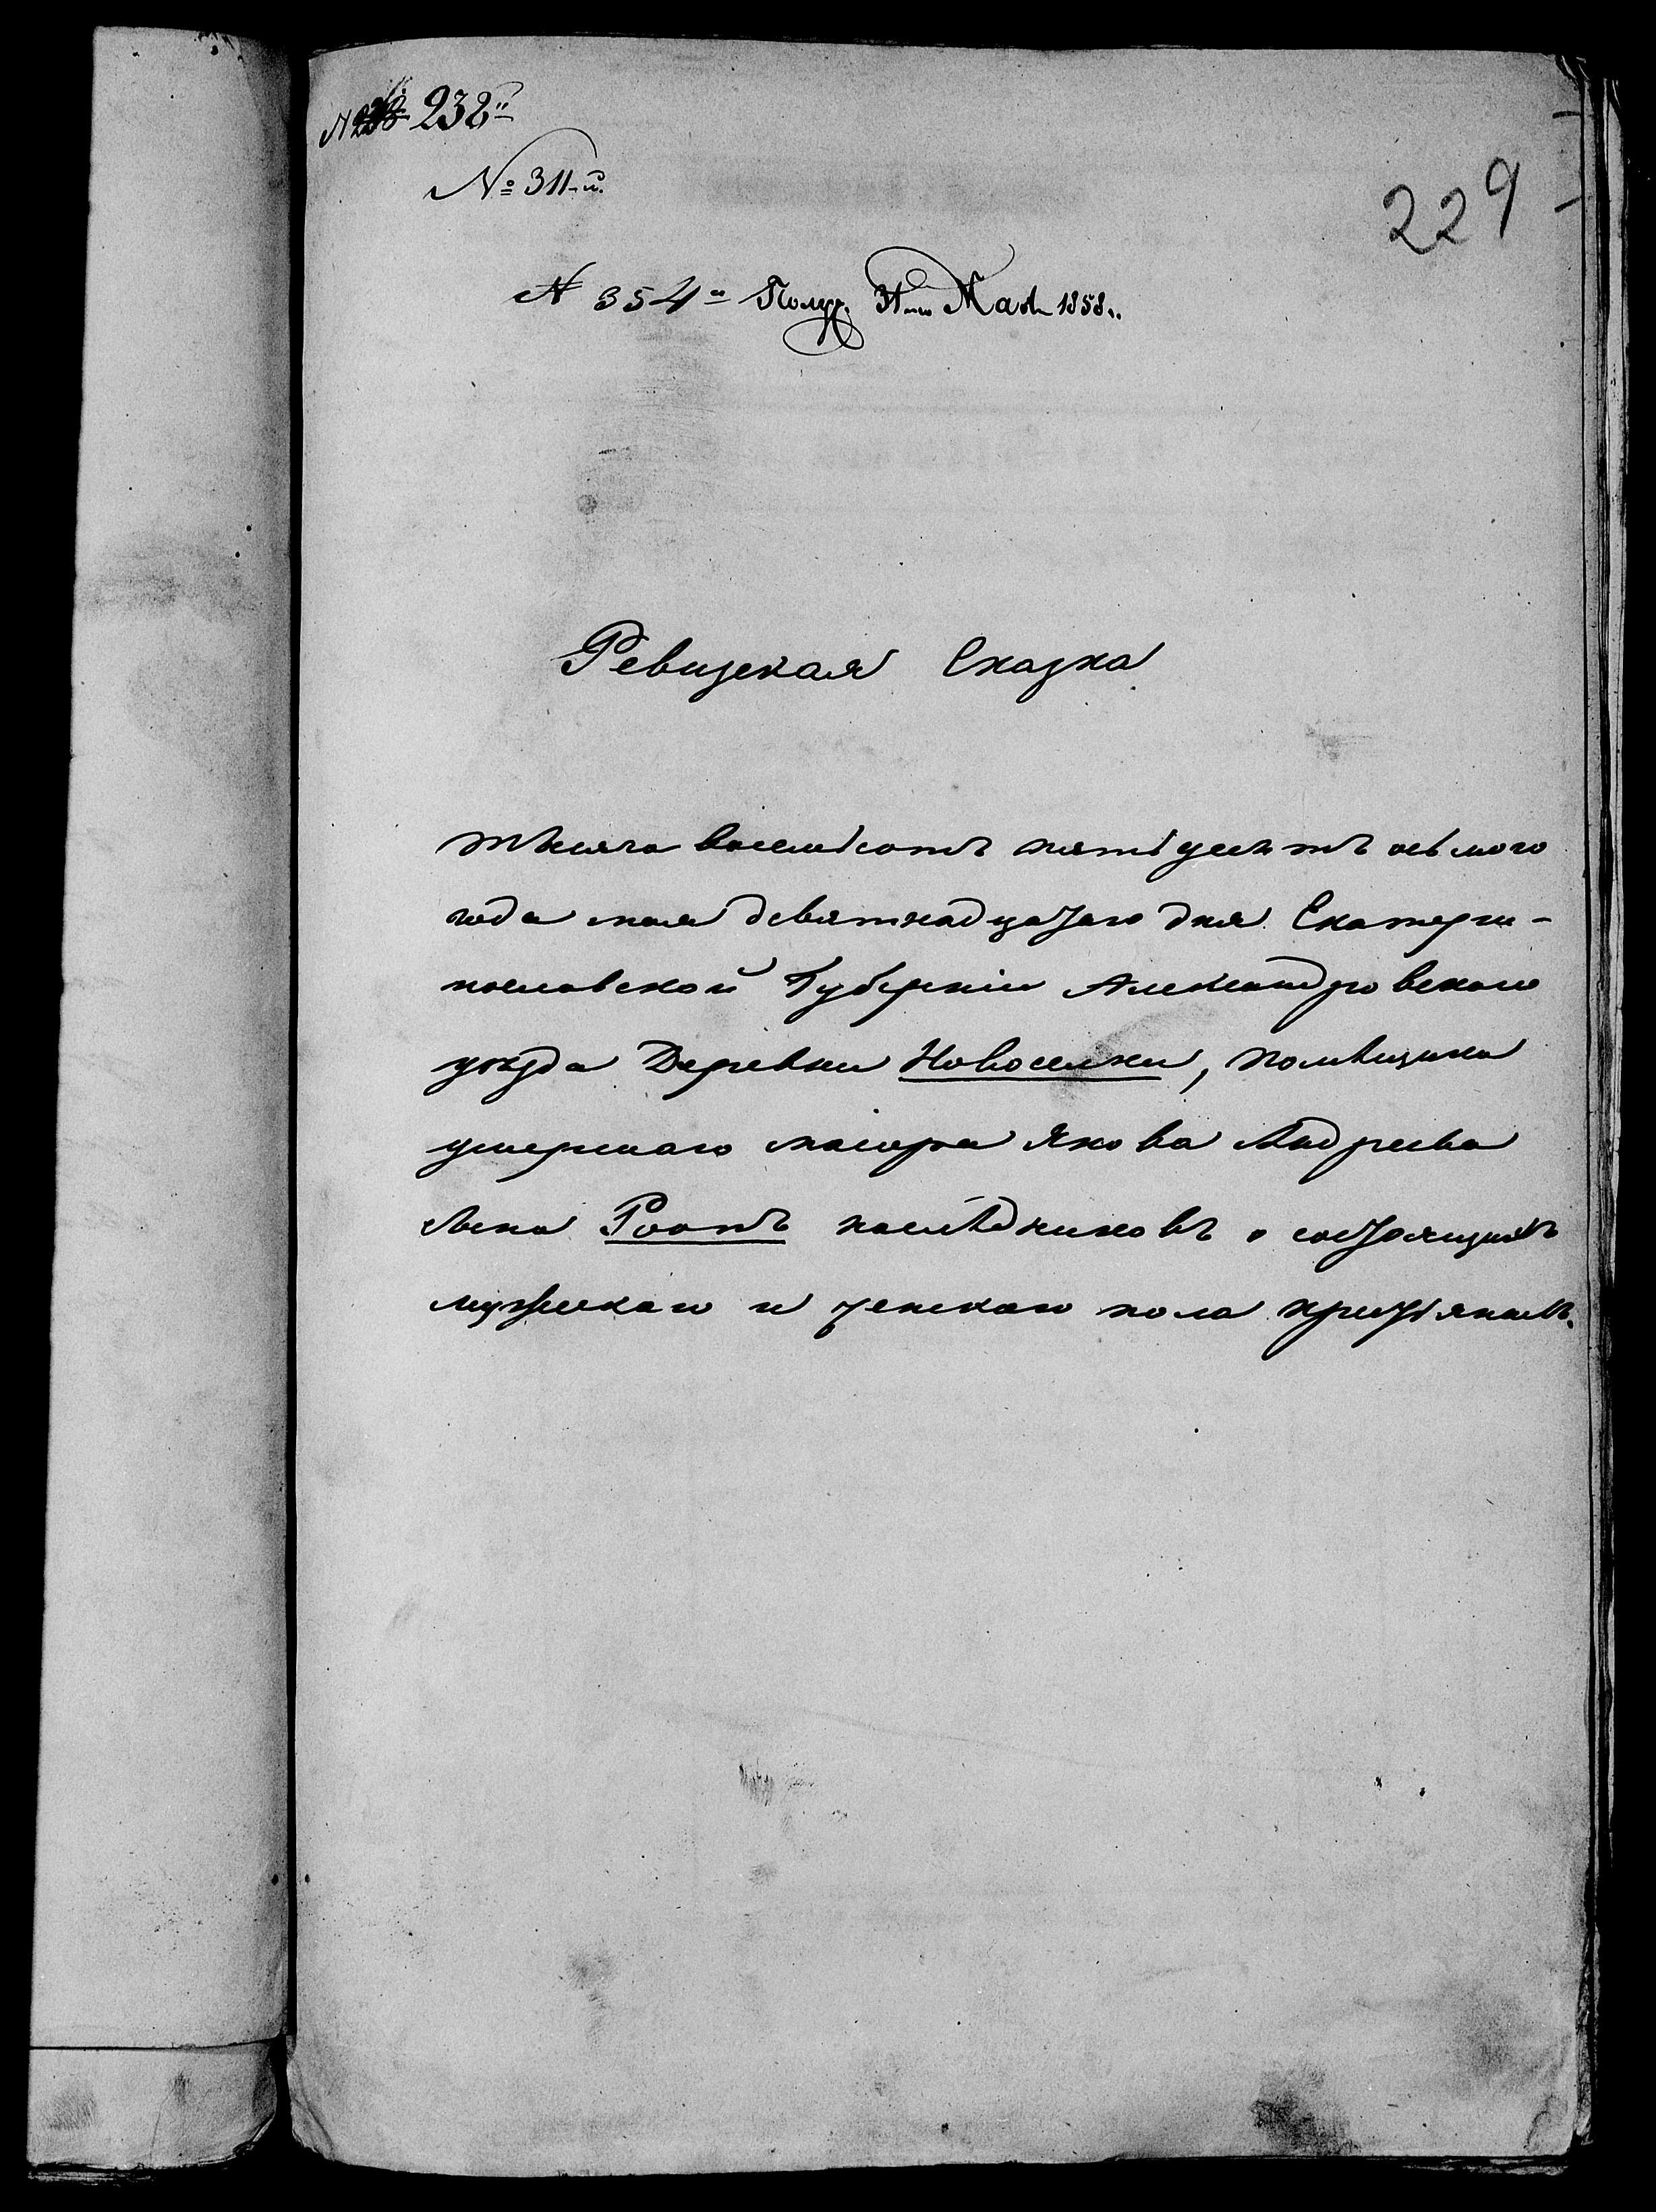 238й
№ 311-й.
229
№ 354й Получ. 31го Мая 1858.
Ревизская Сказка
тысяча восемьсотъ пятьдесятъ осьмого
года мая девятнадцатаго дня Екатери-
нославской Губерніи Александровскаго
уѣзда Деревни Новоселки, помѣщика
умершаго маіора Якова Андреева
сына Роотъ наслѣдниковъ о состоящихъ
мужескаго и женскаго пола крестьянахъ.